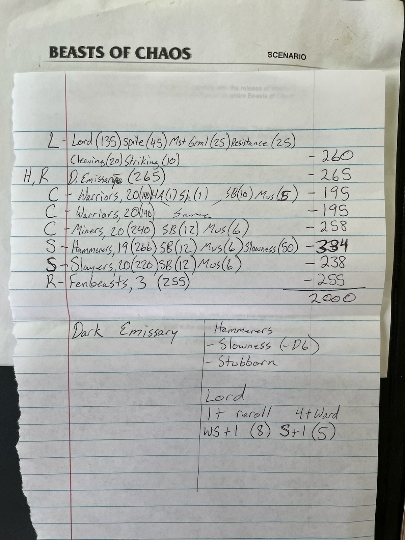 BEASTS OF CHAOS
SCENARIO
L - Lord (135) Spite (45) Mst Grml (25) Resistance (25)
Cleaving (20) Striking (10) - 260
H, R D. Emissary (265) - 265
C - Warriors, 20 HA (1) Sh (1) SB (10) Mus (5) - 195
C - Warriors, 20 Same - 195
C - Miners, 20 (240) SB (12) Mus (6) - 258
S - Hammerers, 19 (266) SB (12) Mus (6) Slowness (50) - 334
S - Slayers, 20 (220) SB (12) Mus (6) - 238
R - Fenbeasts, 3 (255) - 255
2000
Dark Emissary
Hammerers
- Slowness (-D6)
- Stubborn
Lord
1+ reroll 4+ Ward
WS+1 (8) S+1 (5)